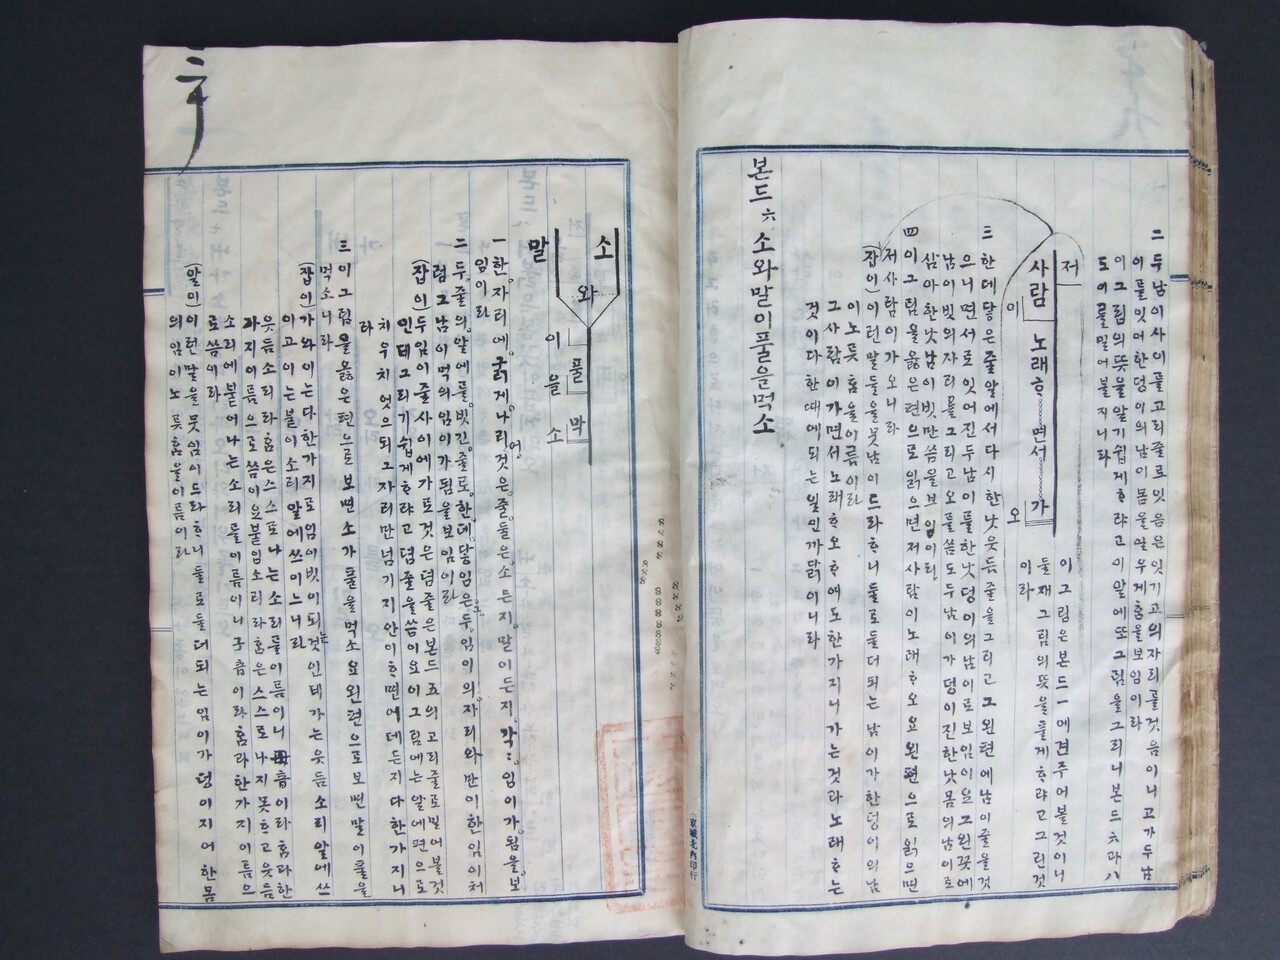 二 두남이사이를고리줄로잇음은잇기고의자리를것음이니고가두남
이를잇어한덩이의남이봄을알우게ᄒᆞᆷ을보임이라
이그림의뜻을알기쉽게ᄒᆞ랴고이알에또그림을그리니본드六과八
도이를밀어볼지니라
저
사람 노래ᄒᆞ 면서 가
이 오
이그림은본드一에견주어볼것이니
둘재그림의뜻을풀게ᄒᆞ랴고그린것
이라
三 한데닿은줄알에서다시한낫웃듬줄을그리고그왼편에남이줄을것
으니면서로잇어진두남이를한낫덩이의남이로보임이요그왼쪽에
남이빗의자리를그리고오를씀도두남이가덩이진한낫몸의남이로
심아한낫남이빗만씀을보임이라
四 이그림을옳은편으로읽으면저사람이노래ᄒᆞ오요왼편으로읽으면
저사람이가오니라
(잡이)이런말들을못남이드라ᄒᆞ니둘로둘더되는남이가한덩이의남
이노릇ᄒᆞᆷ을이름이라
그사람이가면서노래ᄒᆞ오ᄒᆞ애도한가지니가는것과노래ᄒᆞ는
것이다한때에되는일인까닭이니라
본드六 소와말이풀을먹소
소
와 풀 먹
말
이 을 소
一 한자리에굵게나리것은줄둘은소든지말이든지각각임이가됨을보
임이라
二 두줄의알에를빗긴줄로한데닿임은두임이의자리와만이한임이처
럼그남이먹의임이가됨을보임이라
(잡이)두임이줄사이에가로것은덤줄은본드五의고리줄로밀어볼것
인데그리기쉽게ᄒᆞ랴고덤줄을씀이요이그림에는알에편으로
치우치엇으되그자리만넘기지안이ᄒᆞ면어데든지다한가지니
라
三 이그림을옳은편으로보면소가풀을먹소요왼편으로보면말이풀을
먹소니라
(잡이)가와이는다한가지로임이빗이되는것인데가는웃듬소리알에쓰
이고이는붙이소리말에쓰이느니라
웃듬소리라ᄒᆞᆷ은스스로나는소리를이름이니母音이라ᄒᆞᆷ과한
가지이름으로씀이요붙임소리라ᄒᆞᆷ은스스로나지못ᄒᆞ고웃듬
소리에붙어나는소리를이름이니子音이라ᄒᆞᆷ과한가지이름으
로씀이라
(알이)이런말을못임이드라ᄒᆞ니둘로둘더되는임이가덩이지어한몸
의임이노릇ᄒᆞᆷ을이름이라
京城北內印行